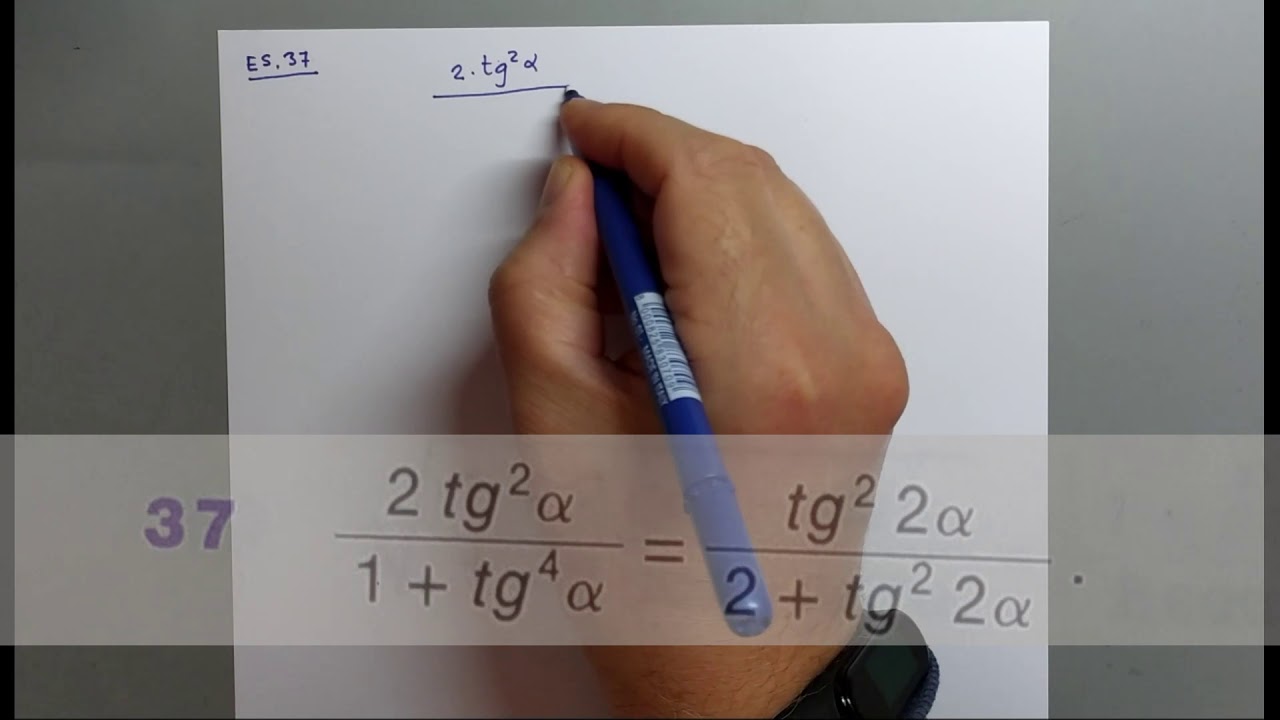 ES. 37
2 · tg² α
37 2 tg² α / 1 + tg⁴ α = tg² 2α / 2 + tg² 2α .